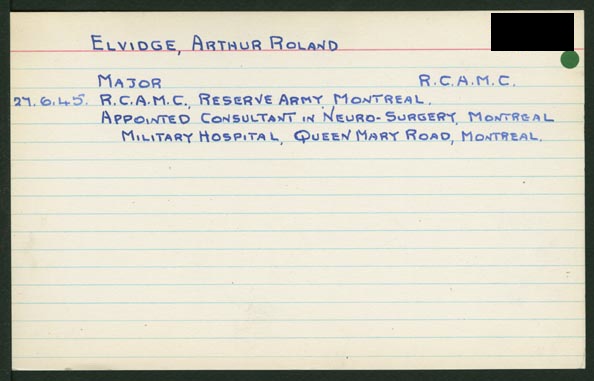 ELVIDGE, ARTHUR ROLAND
MAJOR R.C.A.M.C.
27.6.45. R.C.A.M.C., RESERVE ARMY, MONTREAL.
APPOINTED CONSULTANT IN NEURO-SURGERY, MONTREAL
MILITARY HOSPITAL, QUEEN MARY ROAD, MONTREAL.